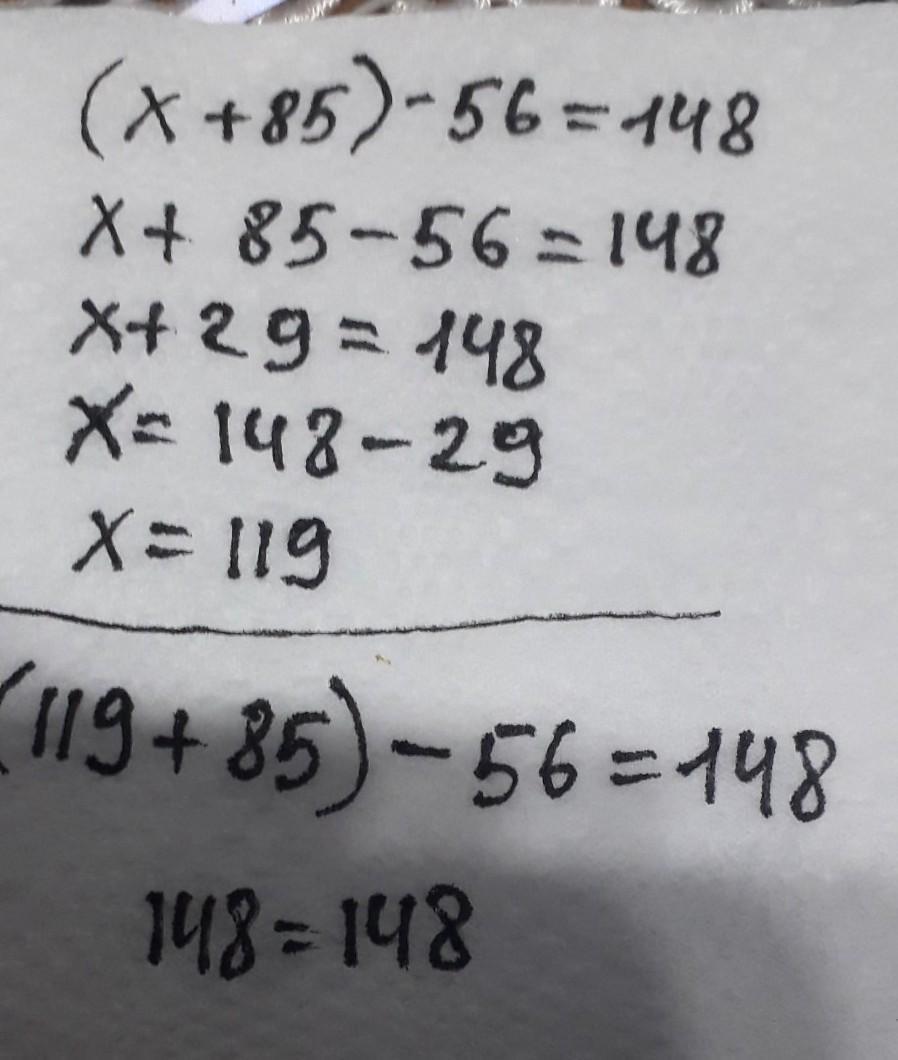 (x+85)-56=148
x+ 85-56=148
x+29=148
x=148-29
x=119
(119+85)-56=148
148=148